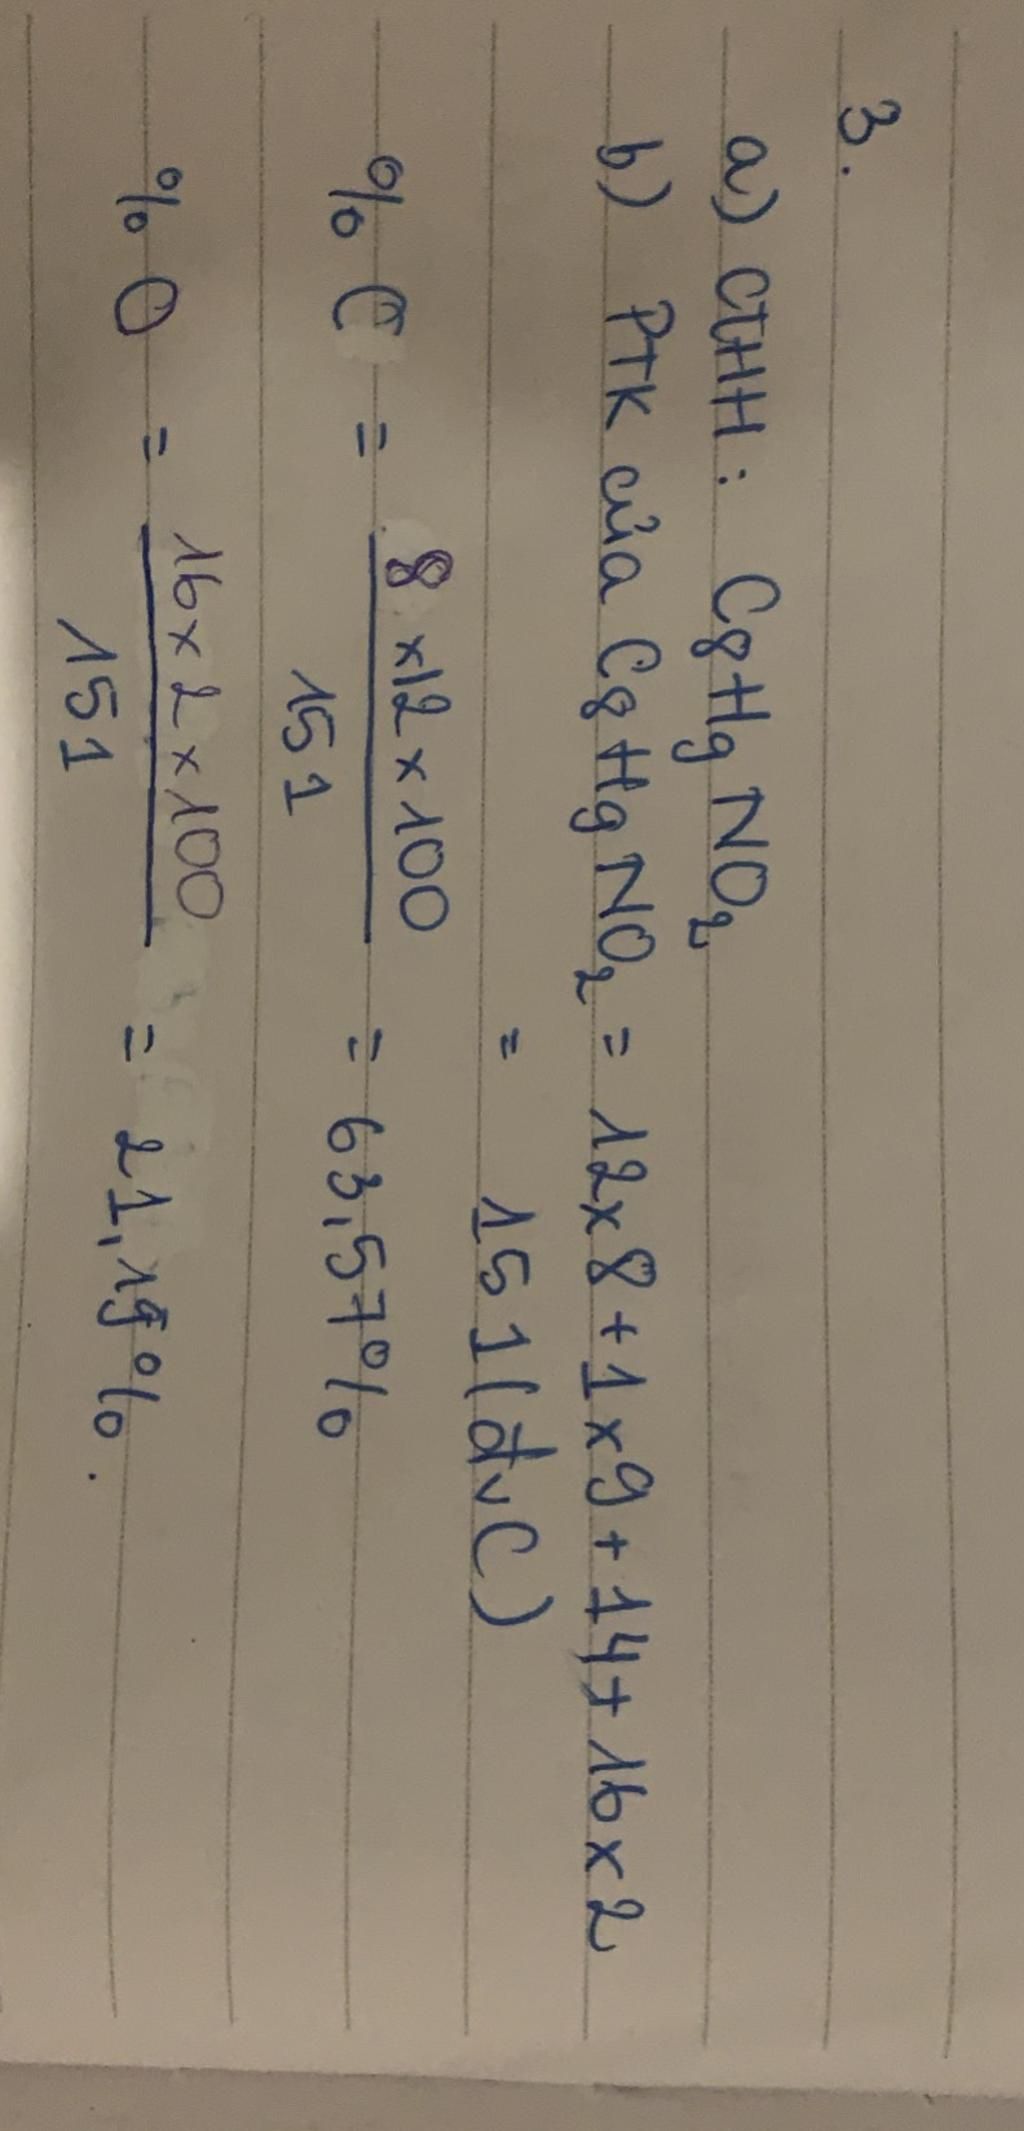 3.
a) CTHH: C₈H₉NO₂
b) PTK của C₈H₉NO₂ = 12x8+1x9+14+16x2
= 151(đvC)
% C = 8x12x100 / 151 = 63,57%
% O = 16x2x100 / 151 = 21,19%.